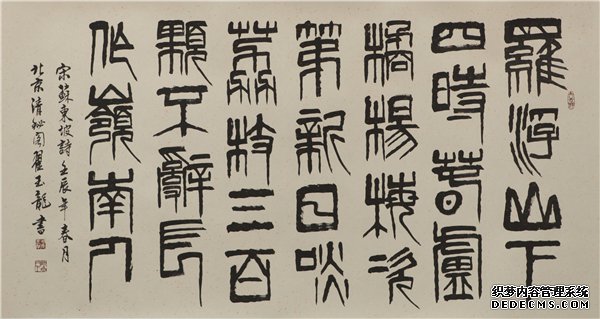 羅浮山下
四時春盧
橘楊梅次
第新日啖
荔枝三百
顆不辭長
作嶺南人
宋蘇東坡詩壬辰年春月
北京清祕閣翟玉龍書
织梦内容管理系统
DEDECMS.COM